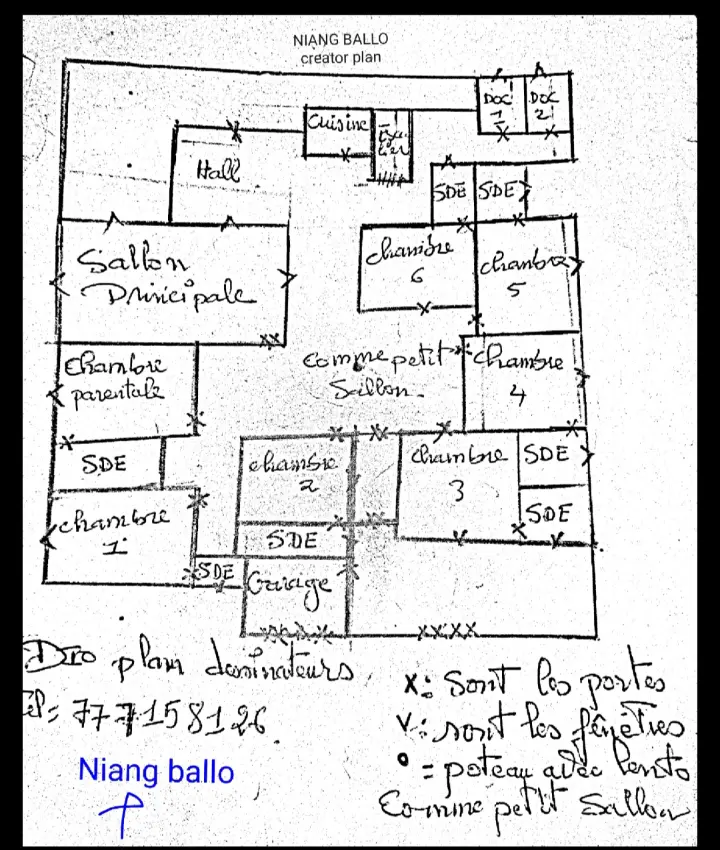 NIANG BALLO
creator plan
DOC
1
DOC
2
Cuisine
Hall
SDE
SDE
Sallon
Prinicipale
chambre
6
chambre
5
Chambre
parentale
Comme petit
Sallon.
chambre
4
SDE
chambre
2
chambre
3
SDE
SDE
chambre
1
SDE
SDE
Garage
Dro plan dessinateurs
Tél= 777158126
x: Sont les portes
v: sont les fênêtres
° = poteau avec
Comme petit Sallon
Niang ballo